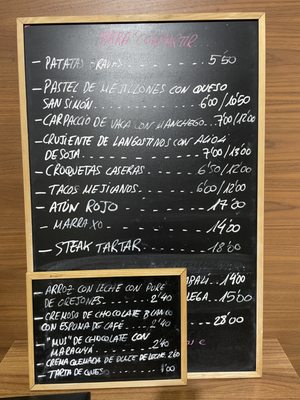 PARA COMPARTIR
- PATATAS BRAVAS ....... 5'50
- PASTEL DE MEJILLONES CON QUESO
SAN SIMÓN ......... 6'00/10'50
- CARPACCIO DE VACA CON MANCHEGO.. 7'00/13'00
- CRUJIENTE DE LANGOSTINOS CON ALIOLI
DE SOJA ......... 7'00/13'00
- CROQUETAS CASERAS ....... 6'50/12'00
- TACOS MEJIANOS ...... 6'00/12'00
- ATÚN ROJO ........ 17'00
- MARRAXO ........ 14'00
- STEAK TARTAR ....... 18'00
- ARROZ CON LECHE CON PURÉ
DE OREJONES ........ 2'40
- CREMOSO DE CHOCOLATE BLANCO
CON ESPUMA DE CAFÉ ... 2'40
- "MUS" DE CHOCOLATE CON
MARACUYÁ ........ 2'40
- CREMA QUEMADA DE DULCE DE LECHE. 2'60
- TARTA DE QUESO
14'00
15'00
28'00